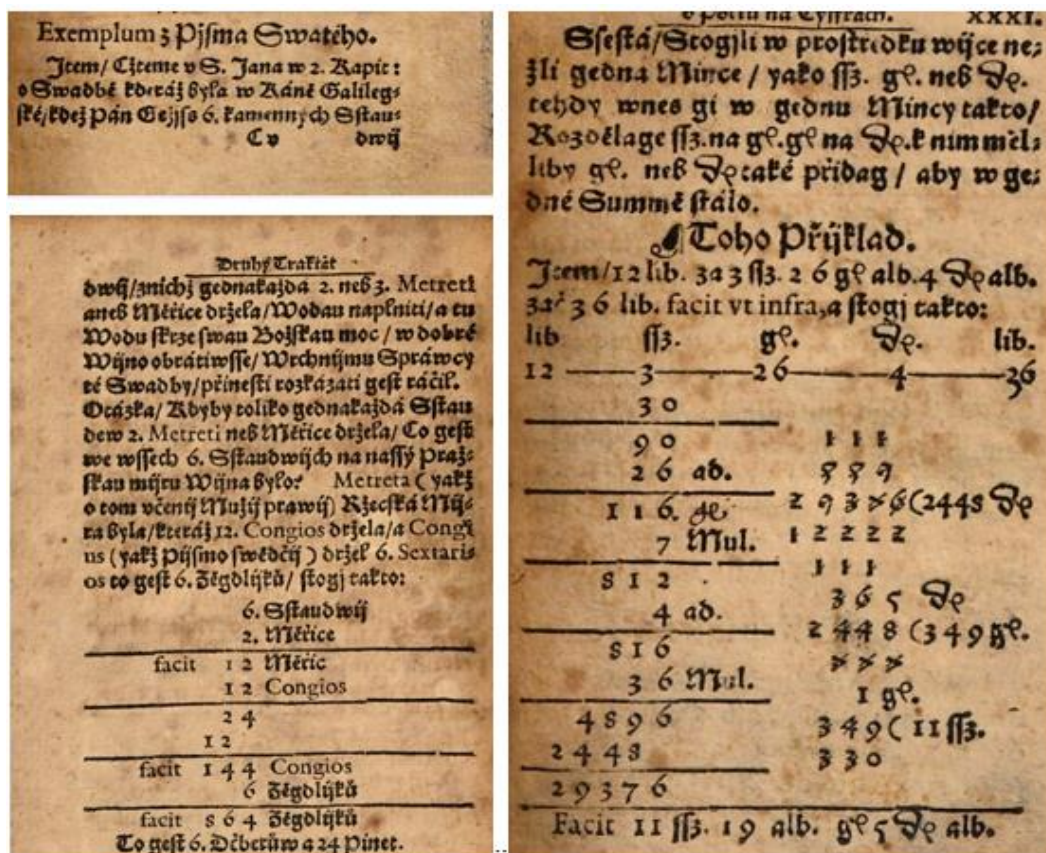 Exemplum z Pijsma Swatého.
Item/ Cžteme v S. Jana w 2. Kapit:
o Swadbě kderáž byla w Káně Galileg=
ské/kdež Pán Gežjss 6. kamenných Sstau=
C v dwij
Druhý Traktát
dwij/z nichž gednakaždá 2. neb 3. Metreti
aneb Měřice držela/Wodau naplniti/a tu
Wodu skrze swau Božskau moc / w dobré
Wijno obrátiwsse/ Wrchnijmu Spráwcy
té Swadby/přinesti rozkázati gest ráčil.
Otázka/ Kdyby toliko gednakaždá Sstau
dew 2. Metreti neb Měřice držela/ Co gest
we wssech 6. Sstaudwijch na nassý Praž=
skau mijru Wijna bylo? Metreta ( yakž
o tom včenij Mužij prawij) Ržecská Mij=
ra byla/kteráž 12. Congios držela/a Congi
us ( yakž Pijsmo swědčij ) držel 6. Sextari=
os to gest 6. Žėgdlijků/ stogj takto:
6. Sstaudwij
2. Měřice
facit 12 Měřic
12 Congios
24
12
facit 144 Congios
6 Žėgdlijků
facit 864 Žėgdlijků
To gest 6. Džberůw a 24 Pinet.
o Počtu na Cyffrách. XXXI.
Ssestá/Stogjli w prostředku wijce ne=
žli gedna Mince / yako ssz. gℓ. neb ₰.
tehdy wnes gi w gednu Mincy takto/
Rozdělage ssz. na gℓ. gℓ na ₰. k nimměl=
liby gℓ. neb ₰ také přidag / aby w ge=
dné Summě stálo.
Toho Přijklad.
Item/12 lib. za 3 ssz. 26 gℓ alb. 4 ₰ alb.
zač 36 lib. facit vt infra,a stogj takto:
lib ssz. gℓ. ₰. lib.
12 — 3 — 26 — 4 — 36
30
90
26 ad.
116. gℓ
7 Mul.
812
4 ad.
816
36 Mul.
4896
2448
29376
111
889
29376(2448 ₰
12222
111
365 ₰
2448 (349 gℓ.
777
1 gℓ.
349(11 ssz.
330
Facit 11 ssz. 19 alb. gℓ 5 ₰ alb.